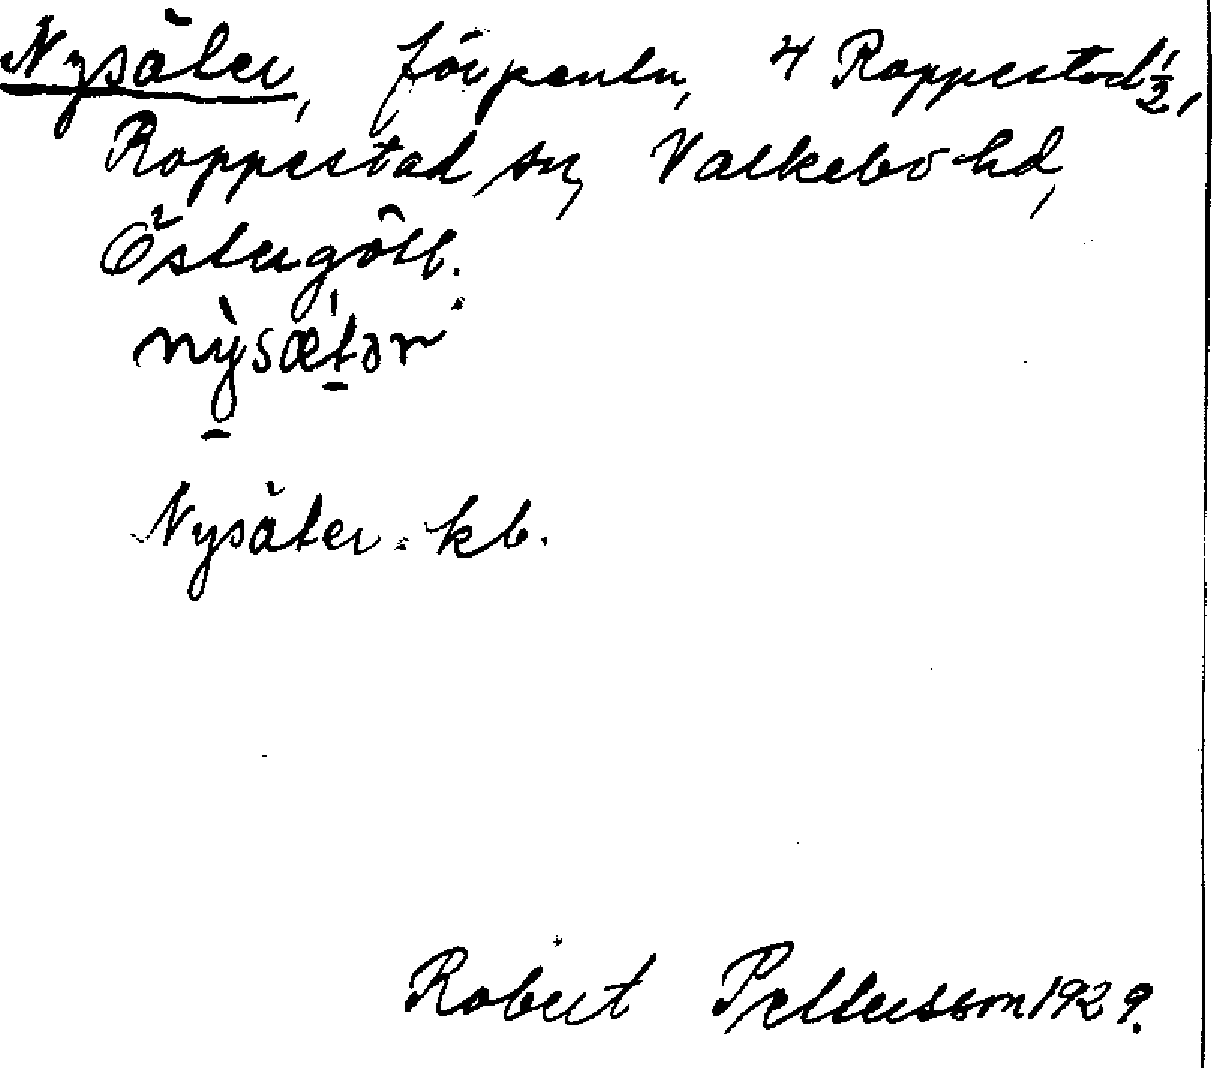 Nysäter, förpantn, 4 Rappestad 1/2,
Rappestad sn, Valkebo hd,
Östergötl.
nỳsæ̀tər
Nysäter. kb.
Robert Pettersson 1929.